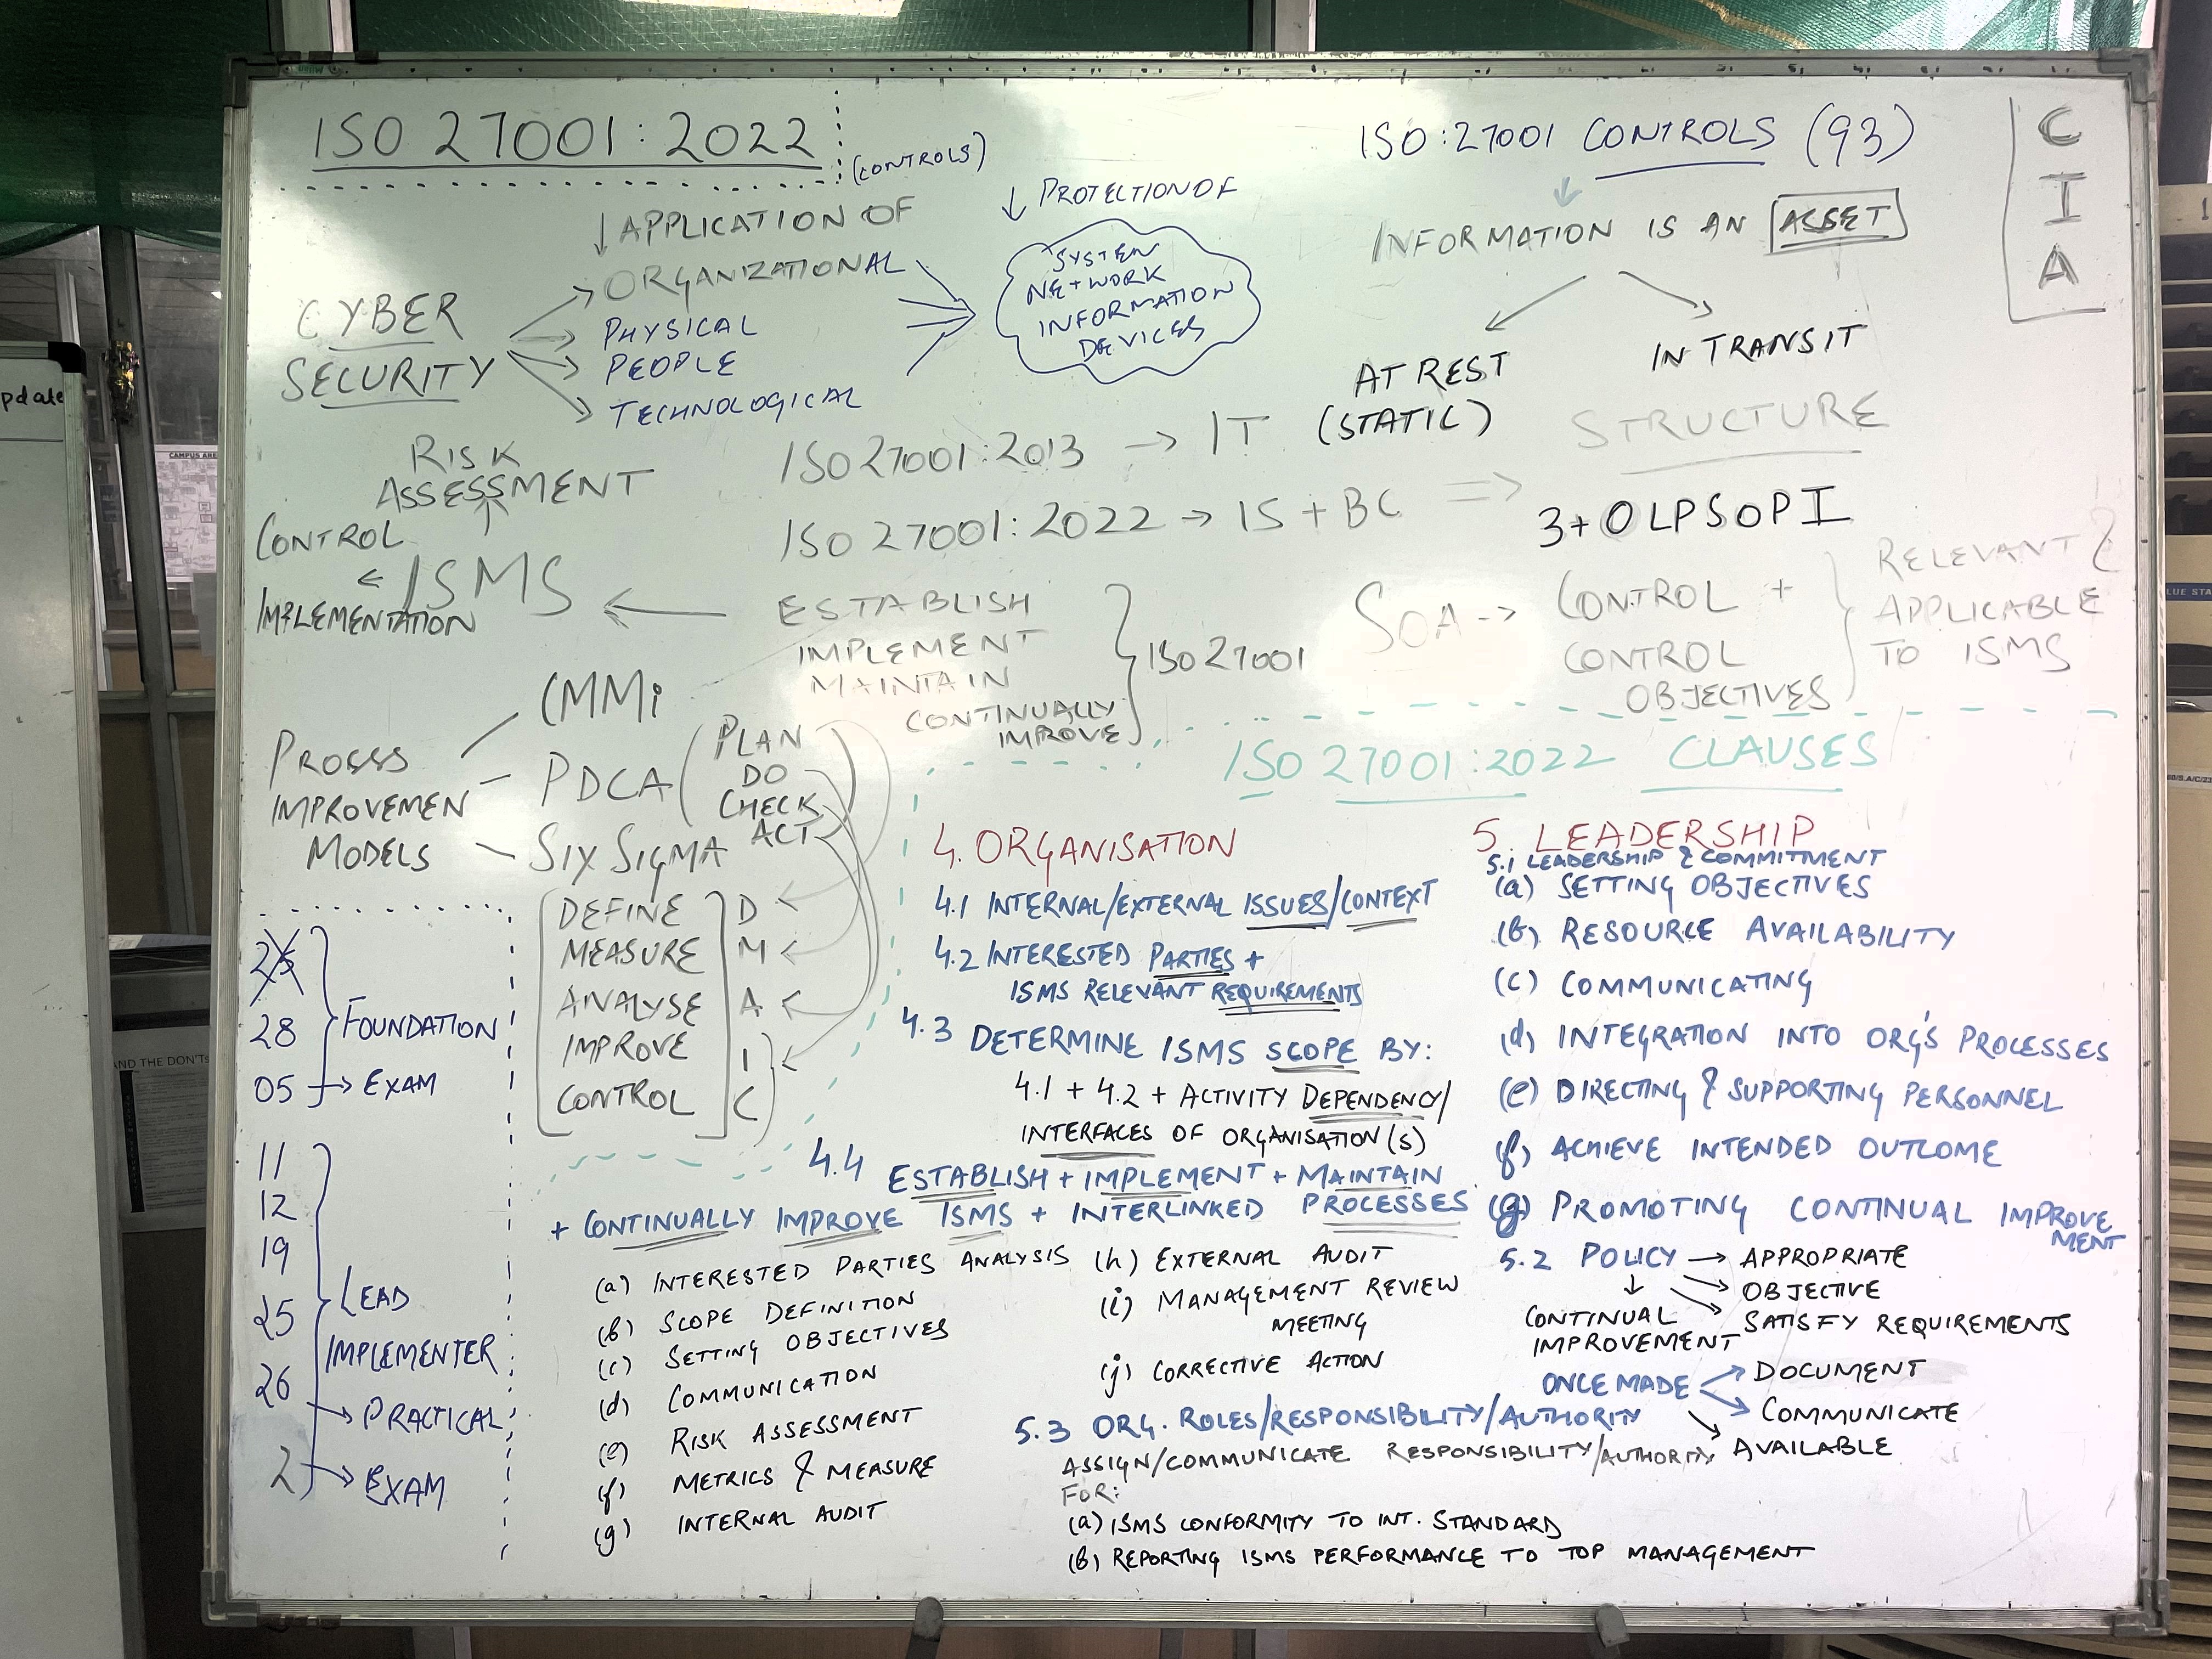 ISO 27001:2022
(CONTROLS)
↓ APPLICATION OF
CYBER
SECURITY
ORGANIZATIONAL
PHYSICAL
PEOPLE
TECHNOLOGICAL
↓ PROTECTION OF
SYSTEM
NETWORK
INFORMATION
DEVICES
ISO:27001 CONTROLS (93)
INFORMATION IS AN ASSET
AT REST
(STATIC)
IN TRANSIT
C
I
A
RISK
ASSESSMENT
CONTROL
← ISMS
IMPLEMENTATION
ISO 27001:2013 → IT
ISO 27001:2022 → IS + BC ⇒
STRUCTURE
3+OLPSOPI
ESTABLISH
IMPLEMENT
MAINTAIN
CONTINUALLY
IMPROVE
ISO 27001
SOA → CONTROL +
CONTROL
OBJECTIVES
RELEVANT &
APPLICABLE
TO ISMS
PROSSS
IMPROVEMEN
MODELS
CMMi
PDCA
PLAN
DO
CHECK
ACT
SIX SIGMA
DEFINE D
MEASURE M
ANALYSE A
IMPROVE I
CONTROL C
28
05 → EXAM
FOUNDATION
11
12
19
25
26
LEAD
IMPLEMENTER
→ PRACTICAL
2 → EXAM
ISO 27001:2022 CLAUSES
4. ORGANISATION
4.1 INTERNAL/EXTERNAL ISSUES/CONTEXT
4.2 INTERESTED PARTIES +
ISMS RELEVANT REQUIREMENTS
4.3 DETERMINE ISMS SCOPE BY:
4.1 + 4.2 + ACTIVITY DEPENDENCY/
INTERFACES OF ORGANISATION(S)
4.4 ESTABLISH + IMPLEMENT + MAINTAIN
+ CONTINUALLY IMPROVE ISMS + INTERLINKED PROCESSES
(a) INTERESTED PARTIES ANALYSIS
(b) SCOPE DEFINITION
(c) SETTING OBJECTIVES
(d) COMMUNICATION
(e) RISK ASSESSMENT
(f) METRICS & MEASURE
(g) INTERNAL AUDIT
(h) EXTERNAL AUDIT
(i) MANAGEMENT REVIEW
MEETING
(j) CORRECTIVE ACTION
5. LEADERSHIP
5.1 LEADERSHIP & COMMITMENT
(a) SETTING OBJECTIVES
(b) RESOURCE AVAILABILITY
(c) COMMUNICATING
(d) INTEGRATION INTO ORG'S PROCESSES
(e) DIRECTING & SUPPORTING PERSONNEL
(f) ACHIEVE INTENDED OUTCOME
(g) PROMOTING CONTINUAL IMPROVE
MENT
5.2 POLICY → APPROPRIATE
→ OBJECTIVE
→ SATISFY REQUIREMENTS
↓
CONTINUAL
IMPROVEMENT
ONCE MADE
DOCUMENT
COMMUNICATE
AVAILABLE
5.3 ORG. ROLES/RESPONSIBILITY/AUTHORITY
ASSIGN/COMMUNICATE RESPONSIBILITY/AUTHORITY
FOR:
(a) ISMS CONFORMITY TO INT. STANDARD
(b) REPORTING ISMS PERFORMANCE TO TOP MANAGEMENT
pdate
CAMPUS ARE
AND THE DON'Ts
LUE STA